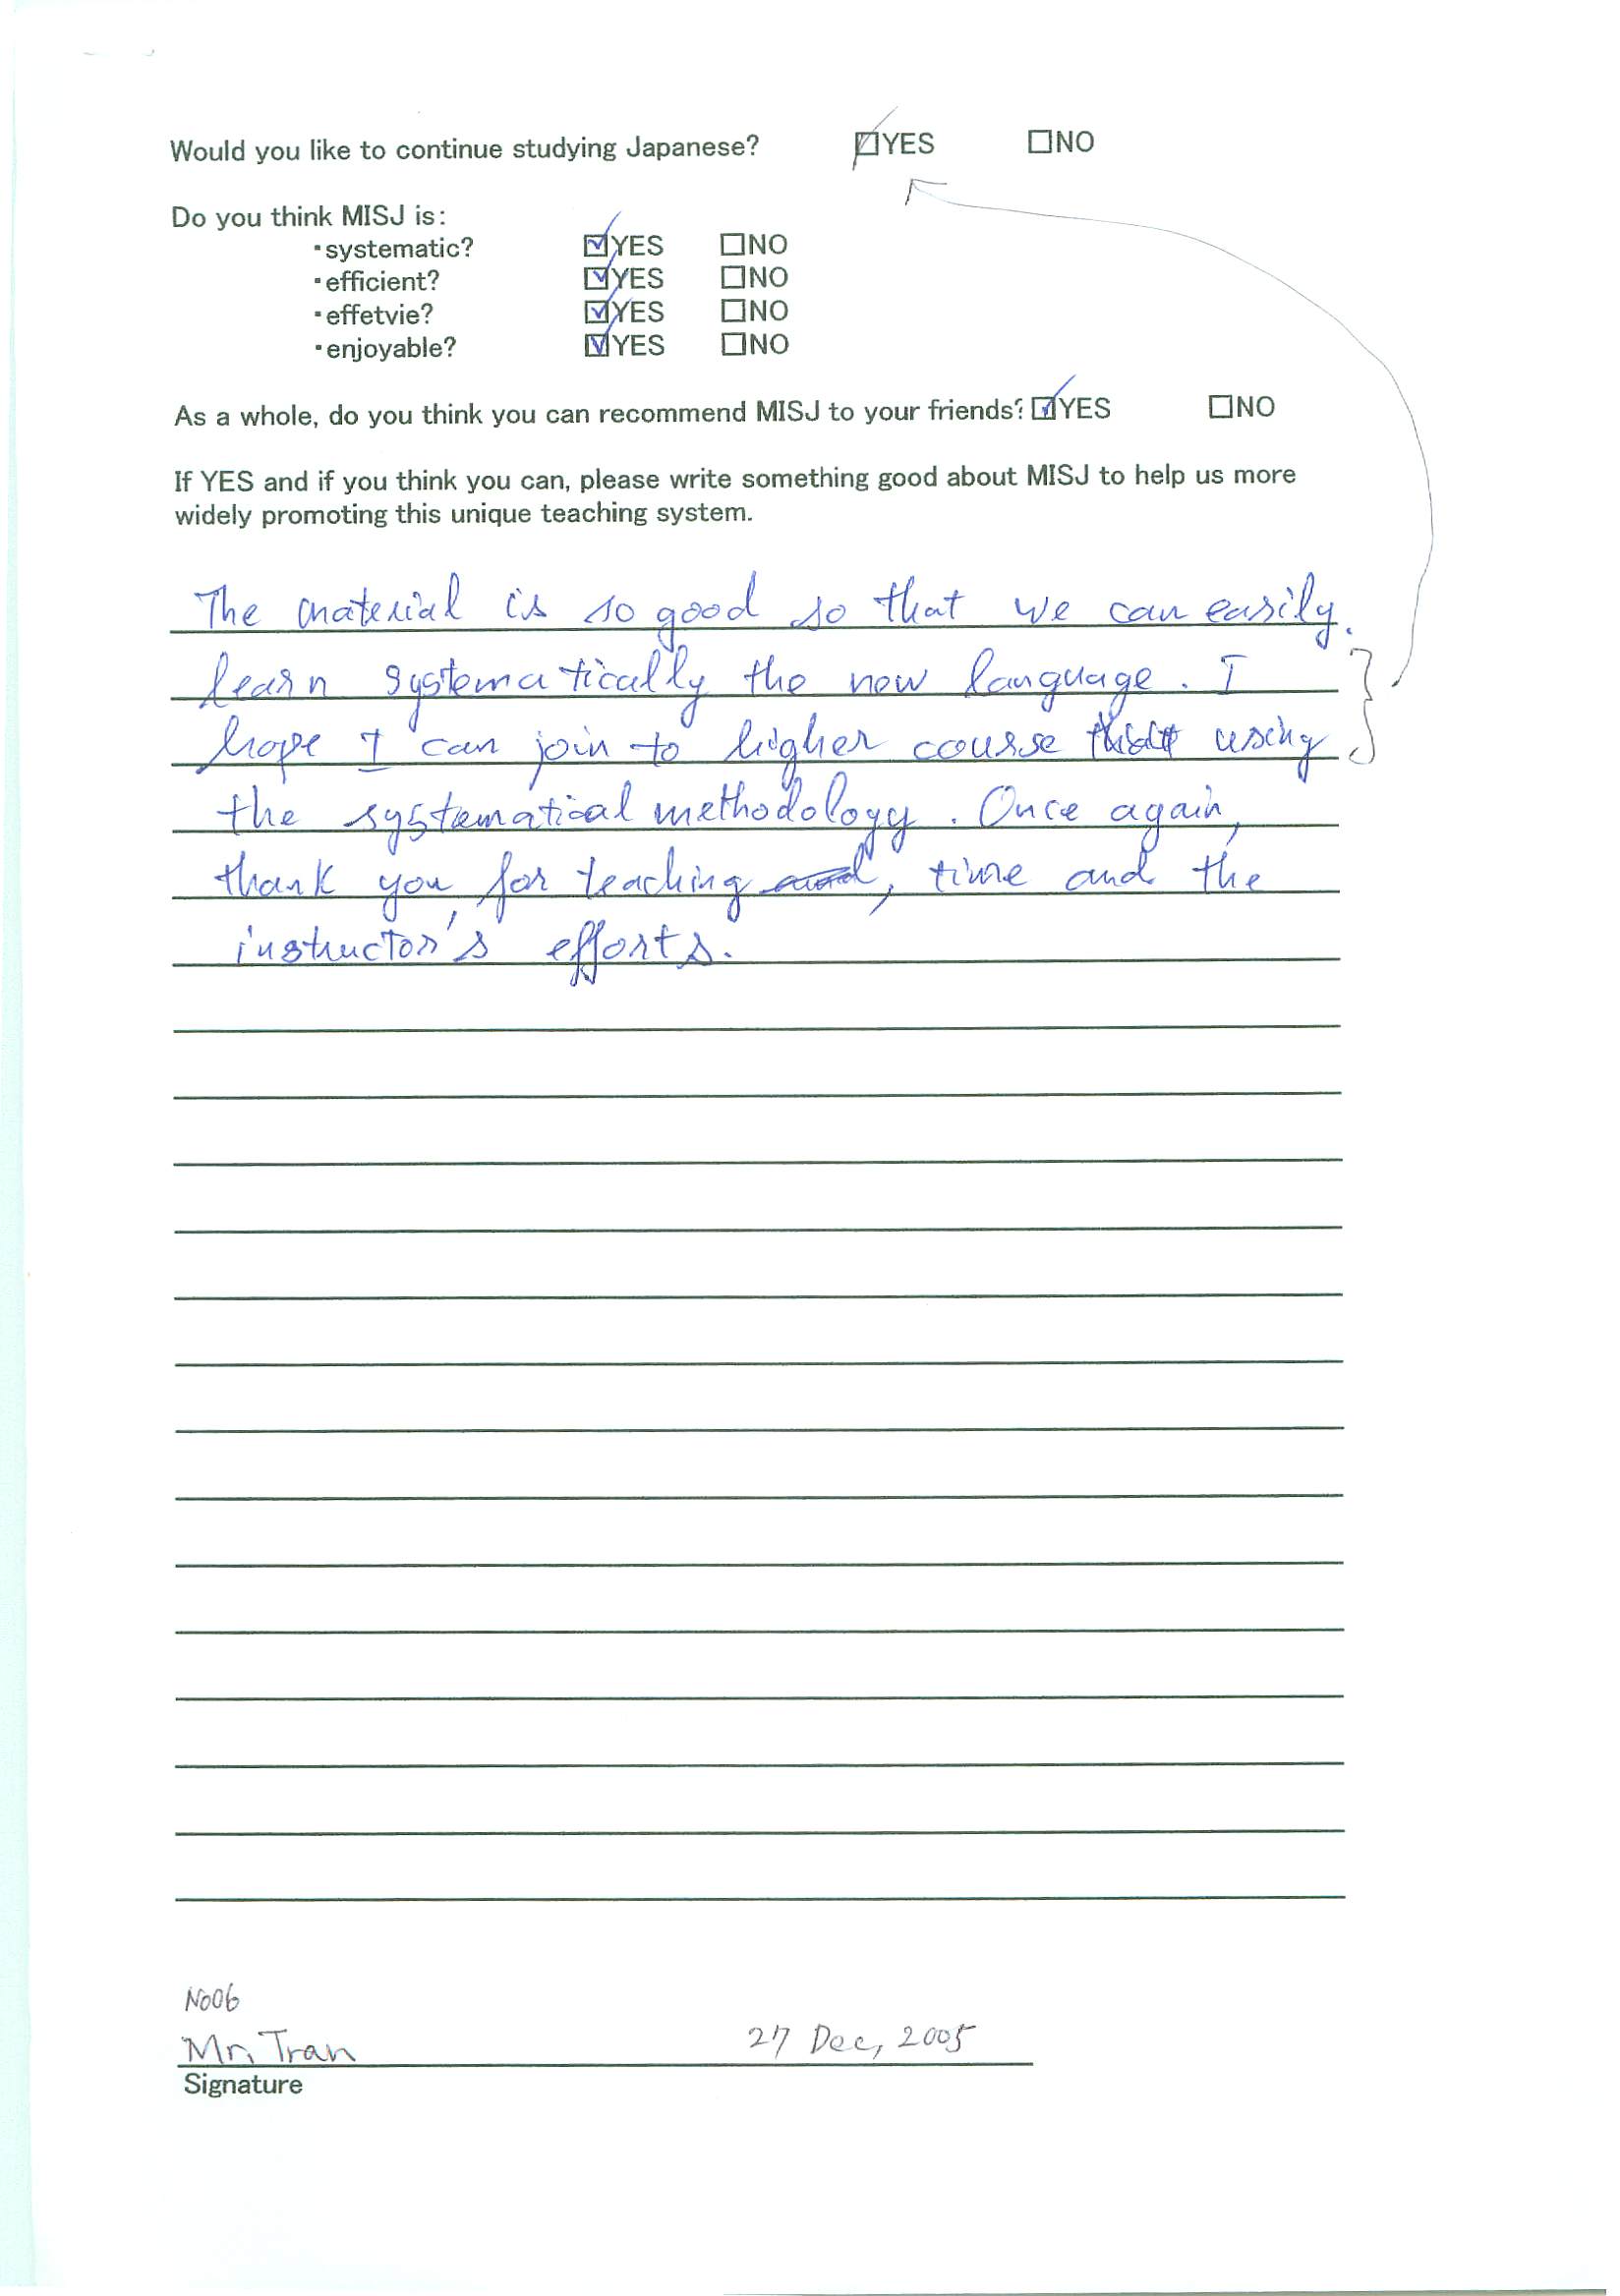 Would you like to continue studying Japanese? ☑YES ☐NO
Do you think MISJ is:
・systematic? ☑YES ☐NO
・efficient? ☑YES ☐NO
・effetvie? ☑YES ☐NO
・enjoyable? ☑YES ☐NO
As a whole, do you think you can recommend MISJ to your friends? ☑YES ☐NO
If YES and if you think you can, please write something good about MISJ to help us more
widely promoting this unique teaching system.
The material is so good so that we can easily
learn systematically the new language. I
hope I can join to higher course using
the systematical methodology. Once again,
thank you, for teaching, time and the
instructor's efforts.
No06
Mr. Tran 27 Dec, 2005
Signature